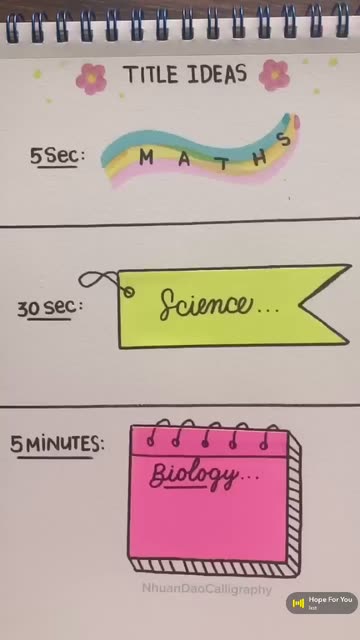 TITLE IDEAS
5 Sec: MATHS
30 Sec: Science...
5 MINUTES:
Biology...
NhuanDaoCalligraphy
Hope For You